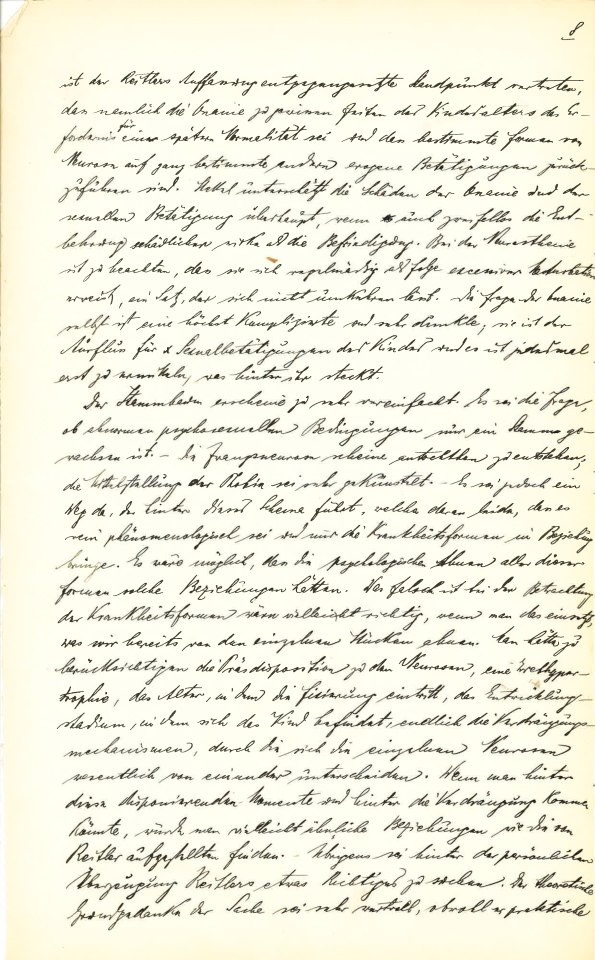 8
ist der Reitlers Auffassung entgegengesetzte Standpunkt vertreten,
daß nemlich die Onanie zu gewissen Zeiten des Kindesalters das Er-
fordernis für einer spätern Normalität sei und daß bestimmte Formen von
Neurosen auf ganz bestimmte andere erogene Betätigungen zurück-
zuführen sind. Stekel unterschätzt die Schäden der Onanie und der
sexuellen Betätigung überhaupt, wenn auch zweifellos die Ent-
behrung schädlicher wirke als die Befriedigung. Bei der Neurasthenie
ist zu beachten, daß sie sich regelmäßig als Folge excessiver Masturbation
erweist, ein Satz, der sich nicht umkehren lässt. Die Frage der Onanie
selbst ist eine höchst komplizierte und sehr dunkle; sie ist der
Ausfluss für x Sexualbetätigungen des Kindes und es ist jedesmal
erst zu ermitteln, was hinter ihr steckt.
Der Stammbaum erscheine zu sehr vereinfacht. Es sei die Frage,
ob abnormen psychosexuellen Bedingungen nur ein Stamm ge-
wachsen ist. – Die Zwangsneurosen scheine entstehen;
die Mittelstellung der Phobie sei sehr gekünstelt. – Es sei jedoch ein
Weg da, der hinter diese Scheine führt, welche daran leide, daß es
rein phänomenologisch sei und nur die Krankheitsformen in Beziehung
bringe. Es wäre möglich, daß die psychologischen Ahnen aller dieser
Formen solche Beziehungen hätten. Was falsch ist bei der Betrachtung
der Krankheitsformen wäre vielleicht richtig, wenn man das einsetzt,
was wir bereits von den einzelnen Stücken ahnen. Man hätte zu
berücksichtigen die Prädisposition zu den Neurosen, eine
trophie, das Alter, in dem die Fixierung eintritt, das Entwicklungs-
stadium, in dem sich das Kind befindet, endlich die Verdrängungs-
mechanismen, durch die sich die einzelnen Neurosen
wesentlich von einander unterscheiden. Wenn man hinter
diese disponierenden Momente und hinter die Verdrängung kommen
könnte, würde man vielleicht ähnliche Beziehungen wie die von
Reitler aufgestellten finden. – Übrigens sei hinter der persönlichen
Überzeugung Reitlers etwas Richtiges zu suchen. Der theoretische
Grundgedanke der Sache sei sehr wertvoll, obwohl er praktische